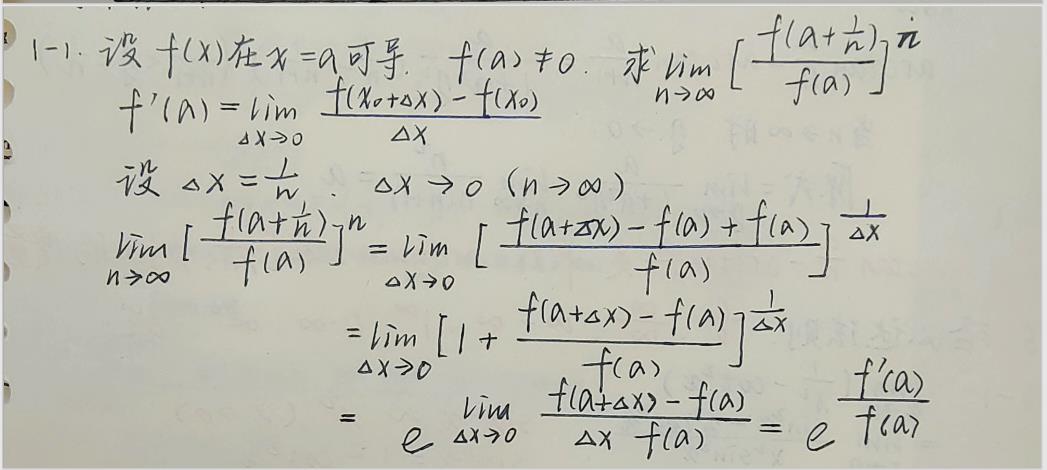 1-1. 设 f(x)在x=a可导. f(a)≠0. 求 lim_{n→∞} [f(a+1/n)/f(a)]^n
f'(a) = lim_{Δx→0} (f(x₀+Δx)-f(x₀))/Δx
设 Δx=1/n. Δx→0 (n→∞)
lim_{n→∞} [f(a+1/n)/f(a)]^n = lim_{Δx→0} [(f(a+Δx)-f(a)+f(a))/f(a)]^{1/Δx}
= lim_{Δx→0} [1+(f(a+Δx)-f(a))/f(a)]^{1/Δx}
= e^{lim_{Δx→0} (f(a+Δx)-f(a))/(Δx f(a))} = e^{f'(a)/f(a)}